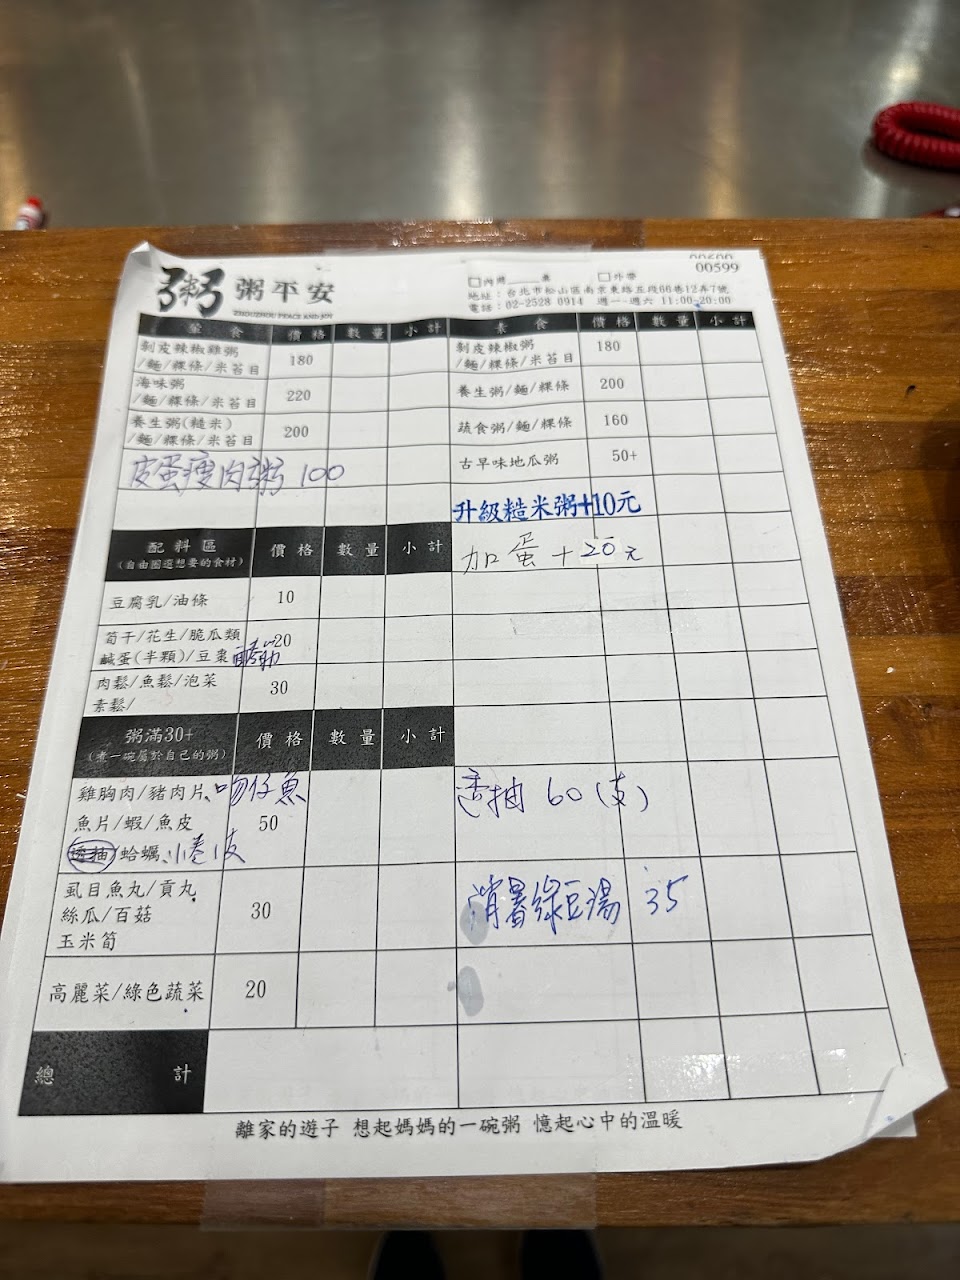 00600
00599
粥 粥平安
ZHOUZHOU PEACE AND JOY
□內用___桌 □外帶
地址：台北市松山區南京東路五段66巷12弄7號
電話：02-2528 0914 週一-週六 11:00-20:00
葷食 價格 數量 小計 素食 價格 數量 小計
剝皮辣椒雞粥
/麵/粿條/米苔目 180
剝皮辣椒粥
/麵/粿條/米苔目 180
海味粥
/麵/粿條/米苔目 220
養生粥/麵/粿條 200
養生粥(糙米)
/麵/粿條/米苔目 200
蔬食粥/麵/粿條 160
皮蛋瘦肉粥 100
古早味地瓜粥 50+
升級糙米粥+10元
配料區 價格 數量 小計
(自由圈選想要的食材)
加蛋+20元
豆腐乳/油條 10
筍干/花生/脆瓜類
鹹蛋(半顆)/豆棗 20
肉鬆/魚鬆/泡菜
素鬆/ 30
粥滿30+ 價格 數量 小計
(煮一碗屬於自己的粥)
雞胸肉/豬肉片、吻仔魚
魚片/蝦/魚皮 50
透抽/蛤蠣、小卷1支
透抽 60(支)
虱目魚丸/貢丸
絲瓜/百菇 30
玉米筍
消暑綠豆湯 35
高麗菜/綠色蔬菜 20
總計
離家的遊子 想起媽媽的一碗粥 憶起心中的溫暖